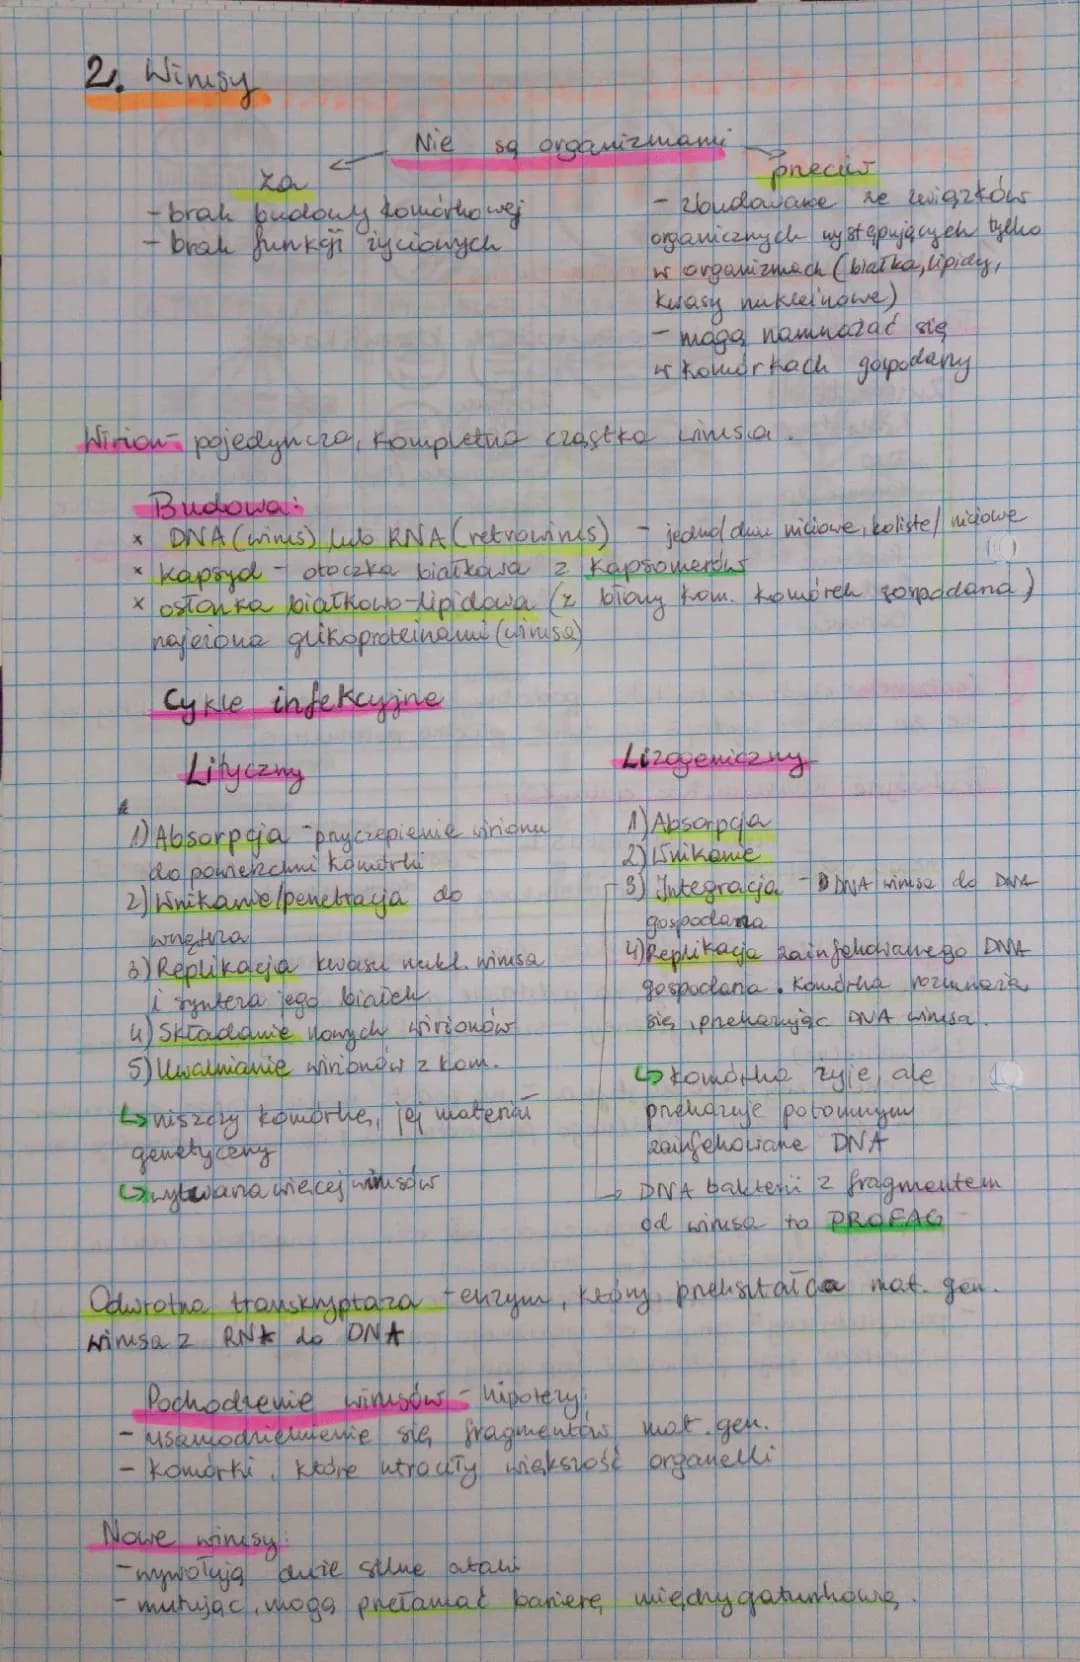 2. Wirusy
Nie są organizmami
za
- brak budowy komórkowej
- brak funkcji życiowych
przeciw
- zbudowane ze związków
organicznych występujących tylko
w organizmach (białka, lipidy,
kwasy nukleinowe)
- mogą namnażać się
w komórkach gospodarzy
Wirion - pojedyncza, kompletna cząstka wirusa.
Budowa:
x DNA (wirus) lub RNA (retrowirus) - jedno/dwu niciowe, koliste/niciowe
x kapsyd - otoczka białkowa z kapsomerów
x osłonka białkowo-lipidowa (z błony kom. komórek gospodarza)
najeżona glikoproteinami (wirusa)
Cykle infekcyjne
Lityczny
1) Absorpcja - przyczepienie wirionu
do powierzchni komórki
2) Wnikanie/penetracja do
wnętrza
3) Replikacja kwasu nukl. wirusa
i synteza jego białek
4) Składanie nowych wirionów
5) Uwalnianie wirionów z kom.
↳ niszczy komórkę, jej materiał
genetyczny
↳ wytwarza więcej wirusów
Lizogeniczny
1) Absorpcja
2) Wnikanie
3) Integracja - DNA wirusa do DNA
gospodarza
4) Replikacja zainfekowanego DNA
gospodarza. Komórka rozmnaża
się, przekazując DNA wirusa.
↳ komórka żyje, ale
przekazuje potomnym
zainfekowane DNA
→ DNA bakterii z fragmentem
od wirusa to PROFAG
Odwrotna transkryptaza - enzym, który przekształca mat. gen.
wirusa z RNA do DNA
Pochodzenie wirusów - hipotezy:
- usamodzielnienie się fragmentów mat. gen.
- komórki, które utraciły większość organelli
Nowe wirusy:
- wywołują duże silne ataki
- mutując, mogą przełamać barierę międzygatunkową.